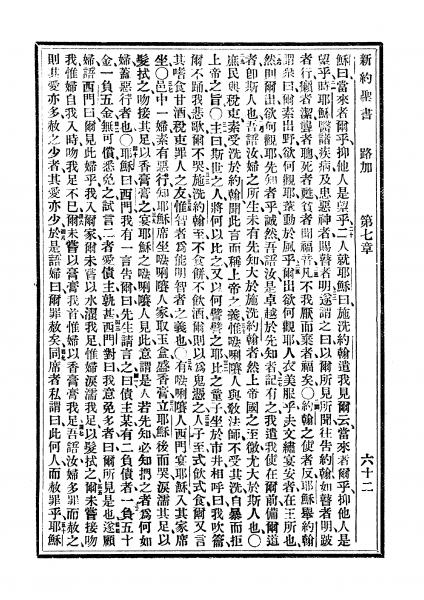 新約聖書 路加 第七章 六十二
穌曰當來者爾乎抑他人是望乎二人就耶穌曰施洗約翰遣我見爾云當來者爾乎抑他人是
望乎時耶穌醫諸疾病及患惡神者賜瞽者明遂謂之曰以爾所見所聞往告約翰如瞽者明跛
者行癩者潔聾者聰死者甦貧者聞福音凡不我厭而棄者福矣〇約翰之使者反耶穌舉約翰
謂眾曰爾素出野欲何觀耶葦動於風乎爾出欲何觀耶人衣美服乎夫文繡宴安者在王所也
然則爾出欲何觀耶先知者乎誠然吾語汝是卓越於先知者記有之我遣我使在爾前備爾道
者卽斯人也吾語汝婦之所生未有先知大於施洗約翰者然上帝國之至微尤大於斯人也〇
庶民與稅吏素受洗於約翰聞此言而稱上帝之義惟𠵽唎㘔人與教法師不受其洗自暴而拒
上帝之旨〇主曰斯世之人將何以比之又以何譬譬之耶比之童子坐於市井相呼曰我吹籥
爾不踊我悲歌爾不哭施洗約翰至不食餅不飲酒爾則以為鬼憑之人子至式飲式食爾又言
其嗜食甘酒稅吏罪人之友惟智者為能明智者之義也〇有𠵽唎㘔人西門宴耶穌入其家席
坐〇邑中一婦素有惡行知耶穌席坐𠵽唎㘔人家取玉盒盛香膏立耶穌後而哭淚濡其足以
髮拭之吻接其足以香膏膏之宴耶穌之𠵽唎㘔人見此意謂是人若先知必知捫之者為何如
婦蓋惡行者也〇耶穌曰西門我有一言告爾曰先生請言之曰債主某有二負債者一負五十
金一負五金無可償悉免之試言二者愛債主孰甚西門對曰我意免多者曰爾所見是也遂顧
婦語西門曰爾見此婦乎我入爾家爾未嘗以水濯我足惟婦淚濡我足以髮拭之爾未嘗接吻
我惟婦自我入時吻我足不已爾未嘗以膏膏我首惟婦以香膏膏我足吾語汝婦多罪而赦之
則其愛亦多赦之少者其愛亦少於是語婦曰爾罪赦矣同席者私謂曰此何人而赦罪乎耶穌